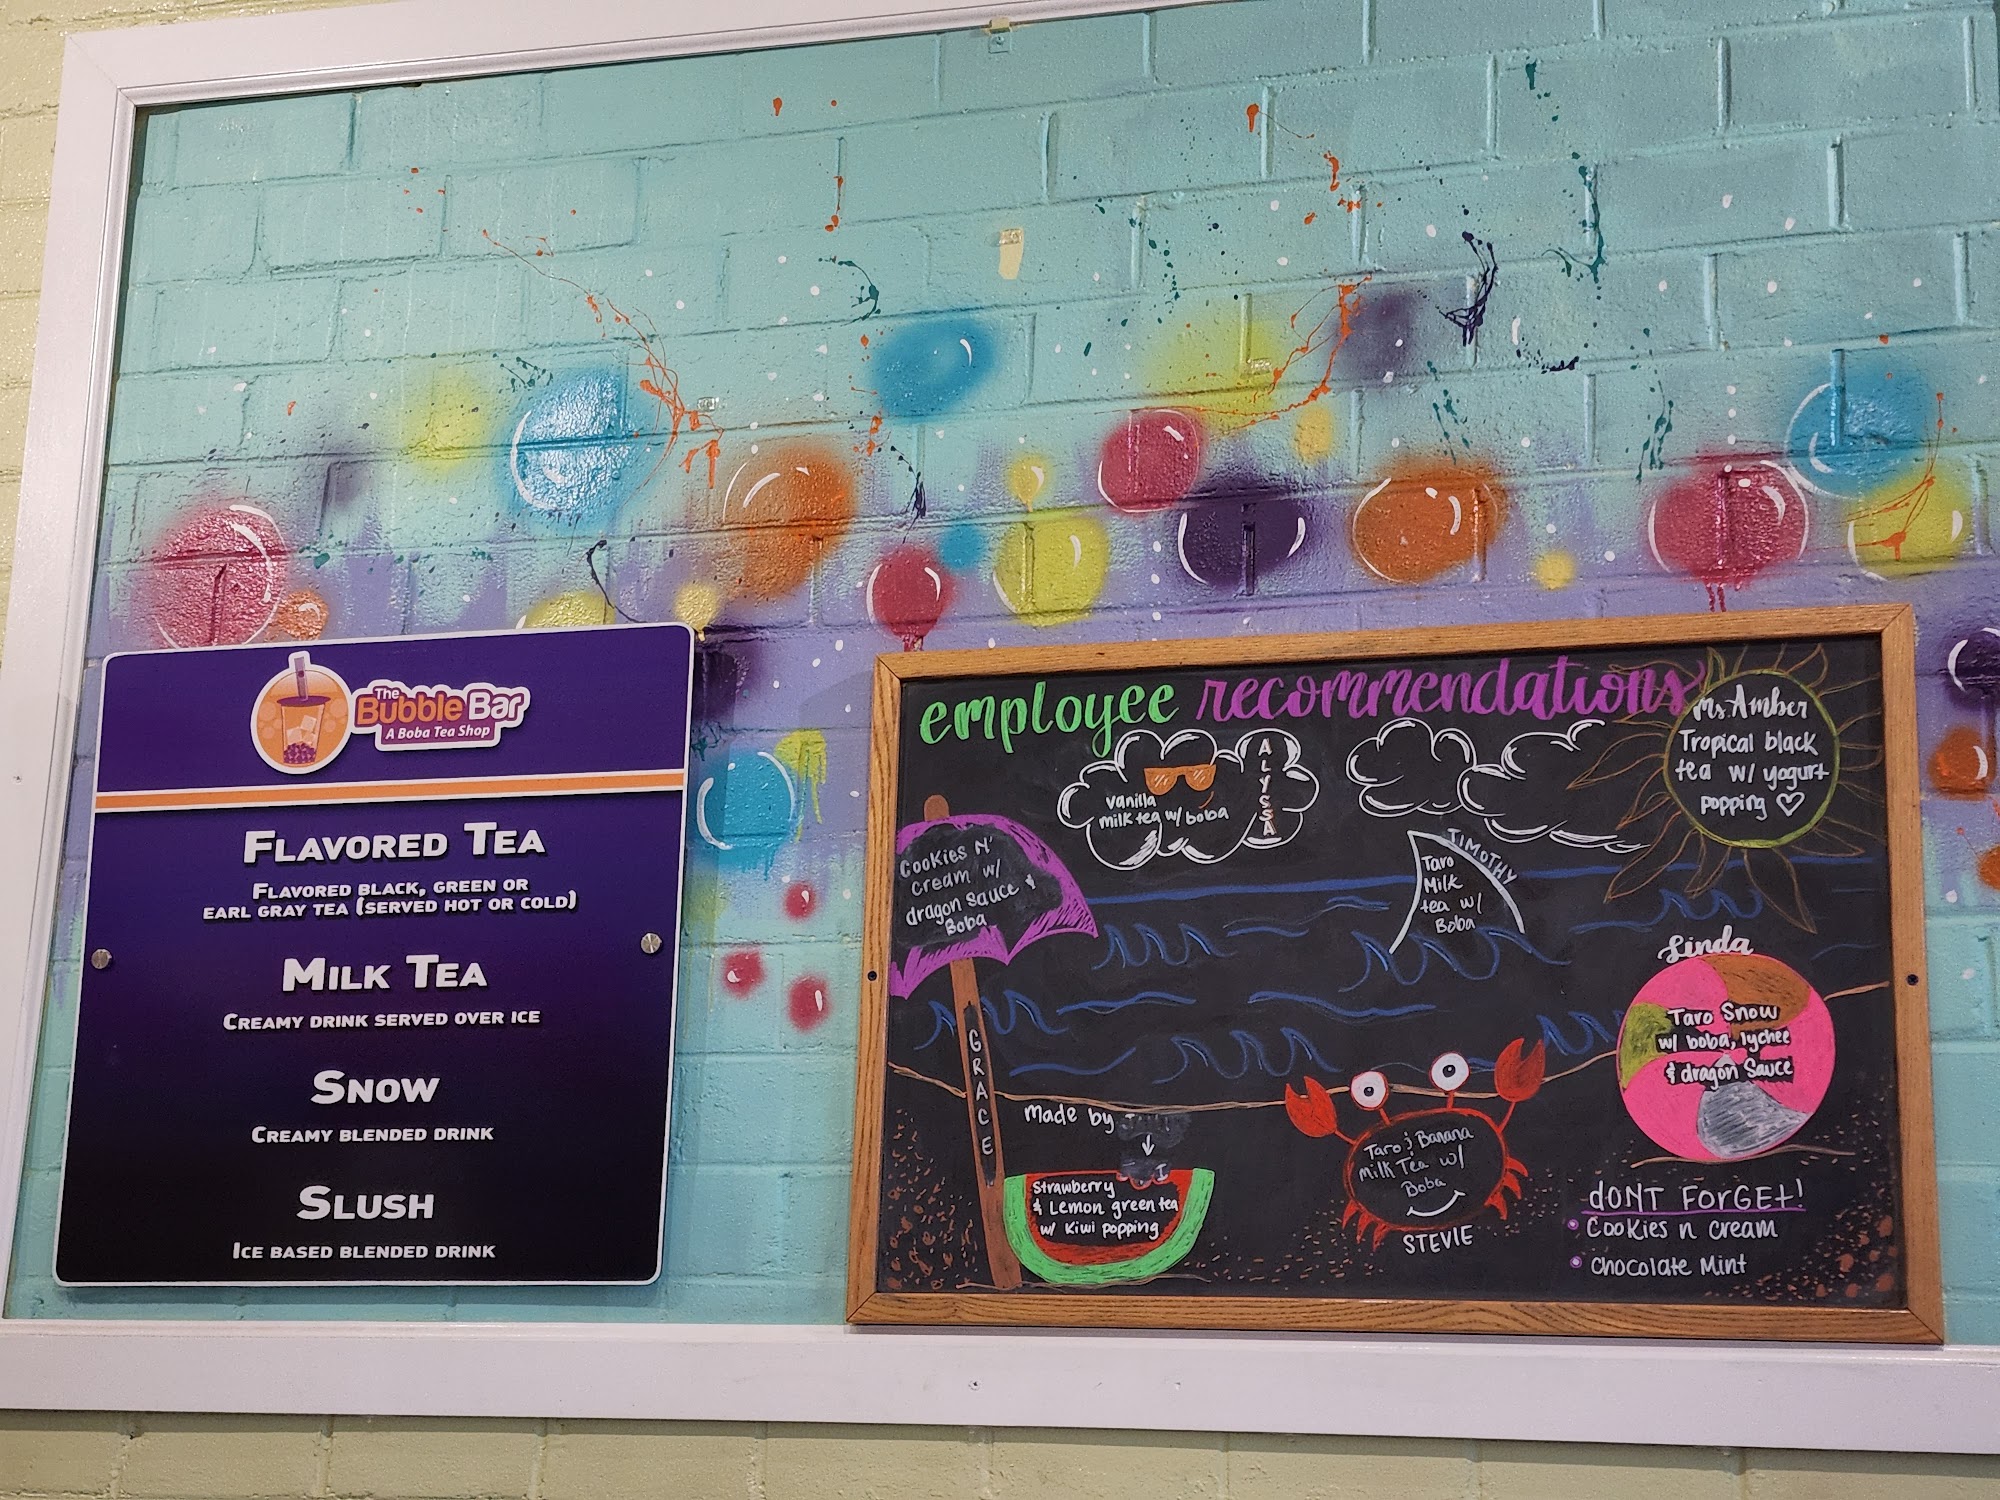 The
Bubble Bar
A Boba Tea Shop
FLAVORED TEA
FLAVORED BLACK, GREEN OR
EARL GRAY TEA (SERVED HOT OR COLD)
MILK TEA
CREAMY DRINK SERVED OVER ICE
SNOW
CREAMY BLENDED DRINK
SLUSH
ICE BASED BLENDED DRINK
employee recommendations
Ms. Amber
Tropical black
tea w/ yogurt
popping ♡
ALYSSA
vanilla
milk tea w/ boba
Cookies N'
Cream w/
dragon sauce &
Boba
GRACE
TIMOTHY
Taro
Milk
tea w/
Boba
Linda
Taro Snow
w/ boba, lychee
& dragon Sauce
made by
Strawberry
& Lemon green tea
w/ Kiwi popping
Taro & Banana
Milk Tea w/
Boba
STEVIE
dONT FORGET!
• Cookies n cream
• Chocolate Mint